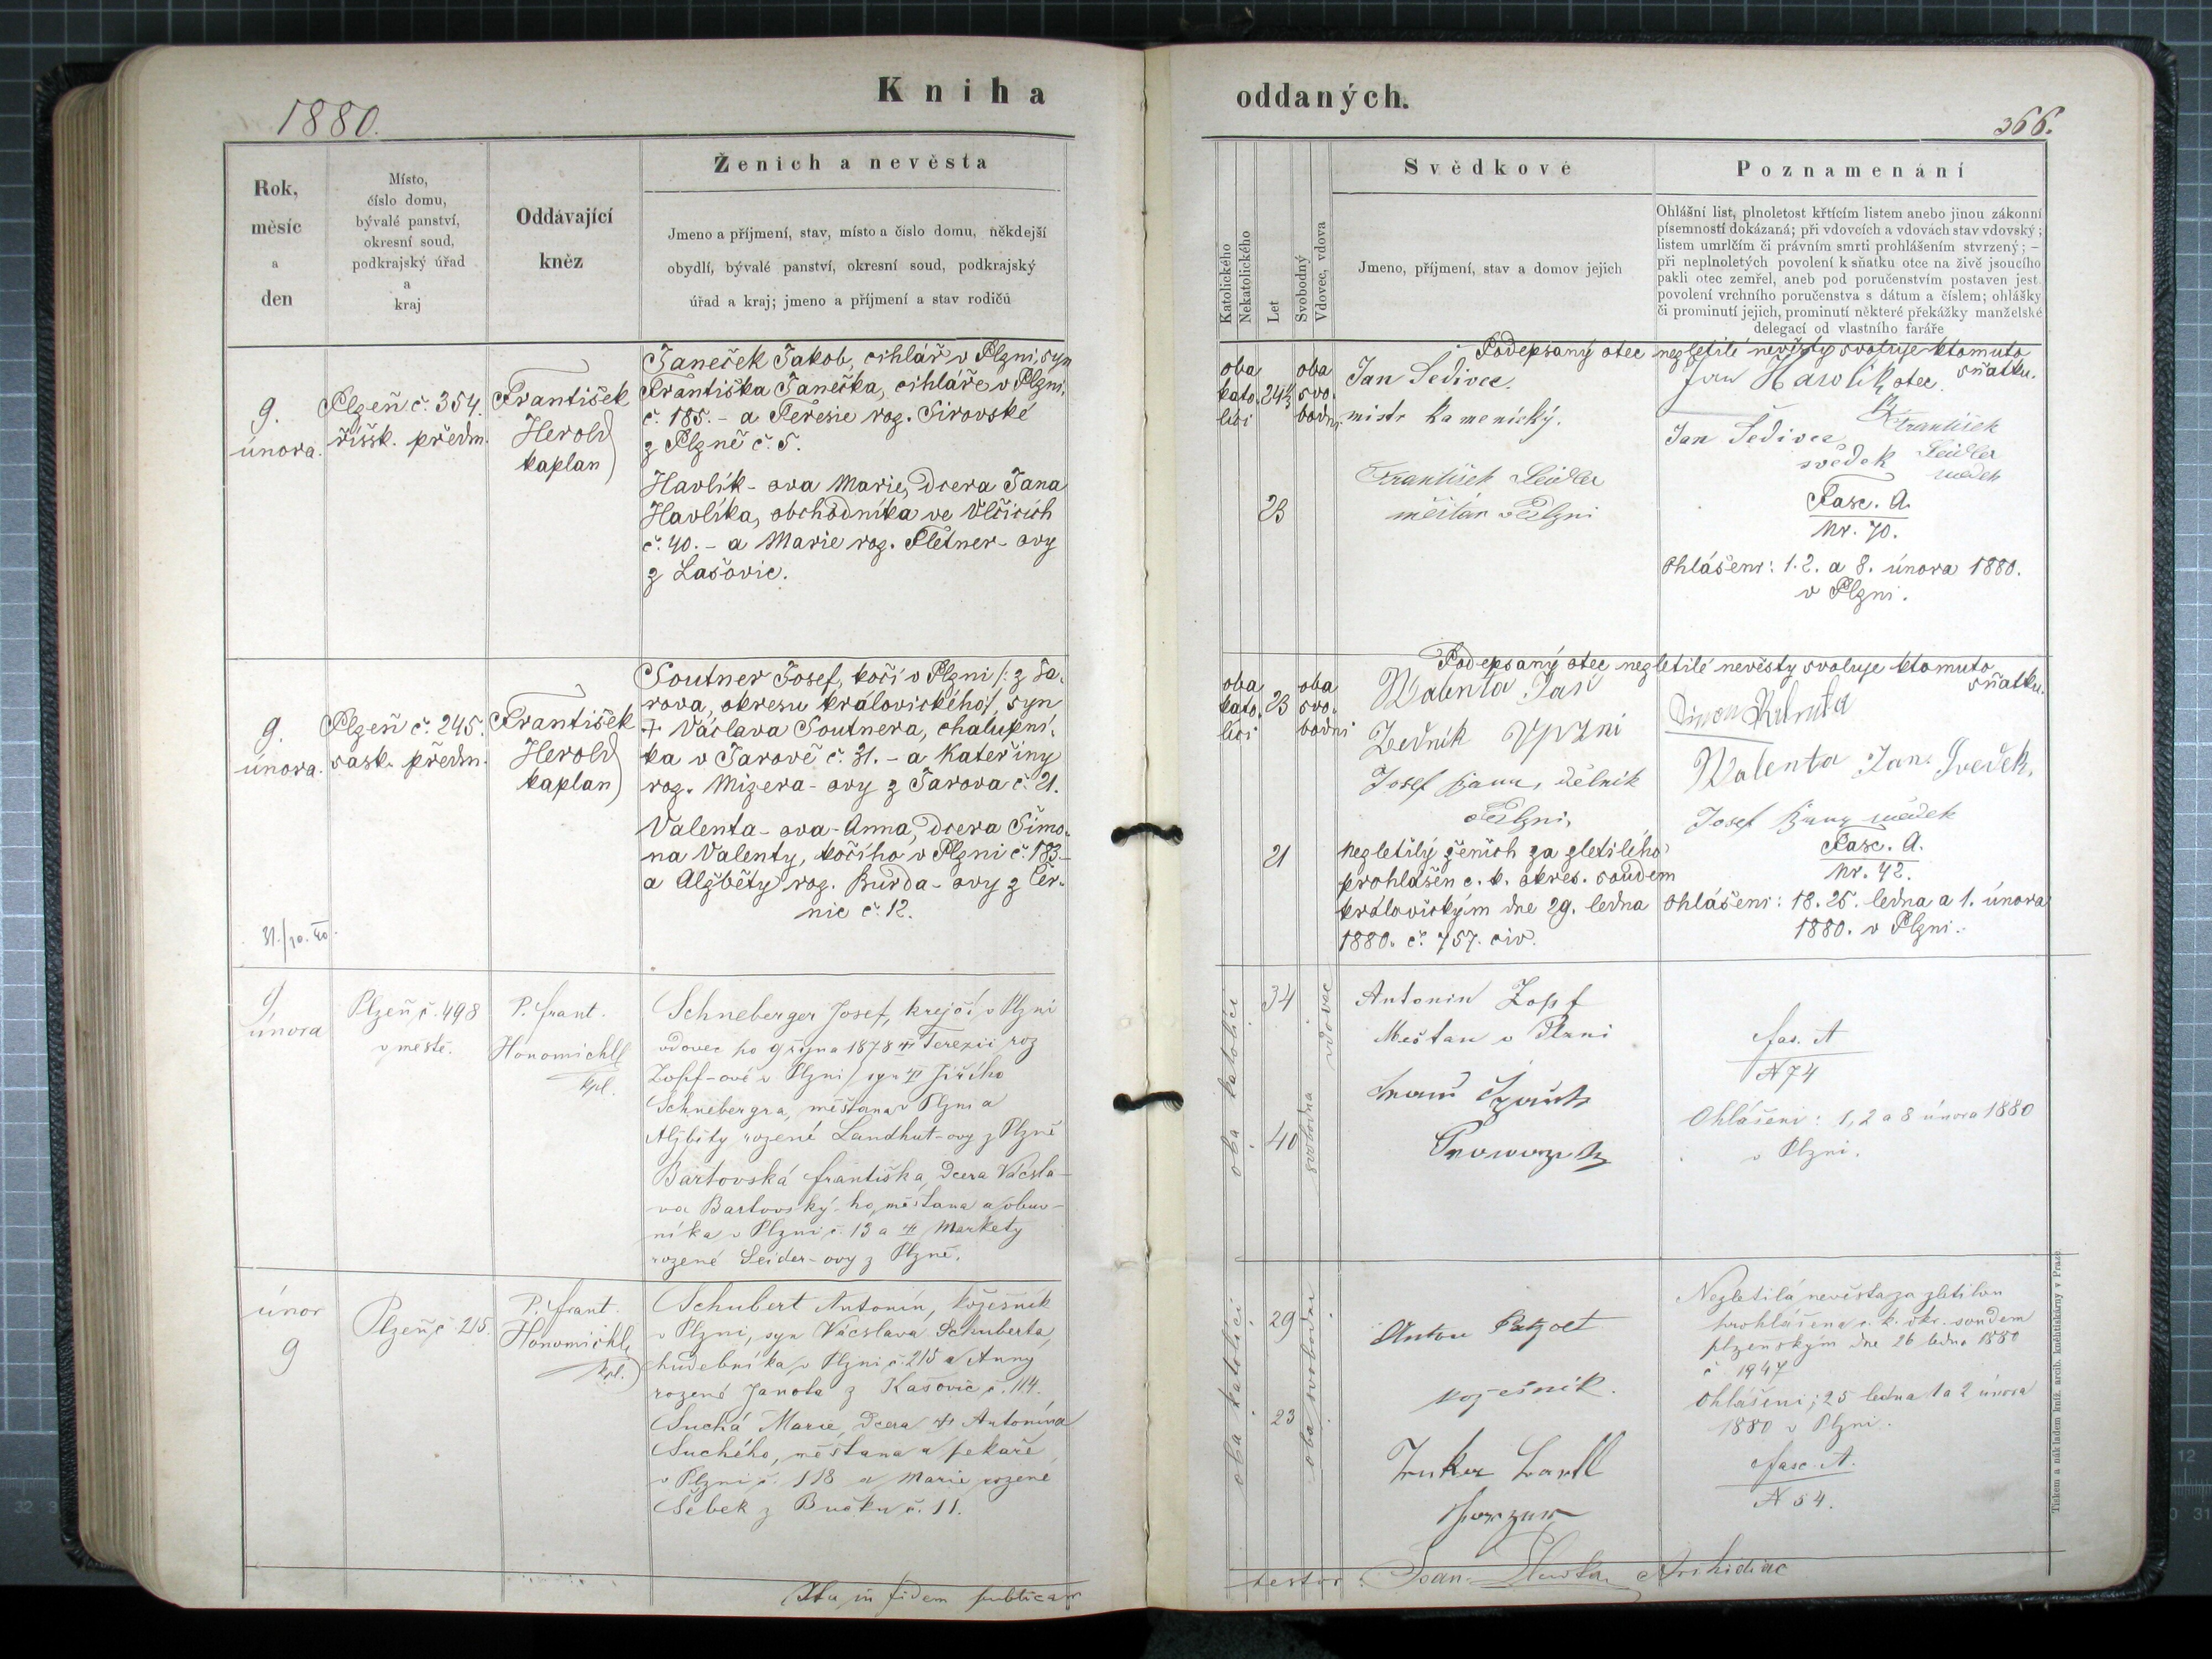 1880.
Kniha
Rok,
měsíc
a
den
Místo,
číslo domu,
bývalé panství,
okresní soud,
podkrajský úřad
a
kraj
Oddávající
kněz
Ženich a nevěsta
Jmeno a příjmení, stav, místo a číslo domu, někdejší
obydlí, bývalé panství, okresní soud, podkrajský
úřad a kraj; jmeno a příjmení a stav rodičů
9.
února.
Plzeň č. 354.
říšsk. předm.
František
Herold
kaplan
Janeček Jakob, cihlář v Plzni, syn
Františka Janečka, cihláře v Plzni,
č. 185. - a Terezie roz. Sirovské
z Plzně č. 5.
Havlík-ova Marie, dcera Jana
Havlíka, obchodníka ve Vlčicích
č. 40. - a Marie roz. Fletner-ovy
z Lašovic.
9.
února.
Plzeň č. 245.
sask. předm.
František
Herold
kaplan
31./10. 40.
Soutner Josef, kočí v Plzni /: z Ja-
rova, okresu královického/, syn
† Václava Soutnera, chalupní-
ka v Jarově č. 31. - a Kateřiny
roz. Mizera-ovy z Jarova č. 21.
Valenta-ova-Anna, dcera Šimo-
na Valenty, kočího v Plzni č. 183.-
a Alžběty roz. Burda-ovy z Čer-
nic č. 12.
9
února
Plzeň č. 498
v městě.
P. Frant.
Honomichl
kpl.
Schneberger Josef, krejčí v Plzni
vdovec po 9 října 1878 † Terezii roz
Zopf-ové v Plzni / syn † Jiřího
Schnebergra, měšťana v Plzni a
Alžběty rozené Landhut-ovy z Plzně
Bartovská Františka, dcera Václa-
va Bartovský-ho, měšťana a obuv-
níka v Plzni č. 13 a † Markety
rozené Seider-ovy z Plzně.
únor
9
Plzeň č 215.
P. Frant.
Honomichl
kpl.
Schubert Antonín, kožešník
v Plzni, syn Václava Schuberta,
hudebníka v Plzni č. 215 a Anny
rozené Janota z Kašovic č. 114.
Suchá Marie, dcera † Antonína
Suchého, měšťana a pekaře
v Plzni č. 118 a Marie rozené
Šebek z Bučku č. 11.
Ita in fidem publicam
oddaných.
366.
Katolického
Nekatolického
Let
Svobodný
Vdovec, vdova
Svědkové
Jmeno, příjmení, stav a domov jejich
Poznamenání
Ohlášní list, plnoletost křtícím listem anebo jinou zákonní
písemností dokázaná; při vdovcích a vdovách stav vdovský;
listem umrlčím či právním smrti prohlášením stvrzený; –
při neplnoletých povolení k sňatku otce na živě jsoucího
pakli otec zemřel, aneb pod poručenstvím postaven jest
povolení vrchního poručenstva s dátum a číslem; ohlášky
či prominutí jejich, prominutí některé překážky manželské
delegací od vlastního faráře
Podepsaný otec nezletilé nevěsty svoluje k tomuto
sňatku.
oba
kato-
líci
24½
oba
svo-
bodni
Jan Šedivec.
mistr kamenický.
František Seidler
měšťan v Plzni
23
Jan Havlík otec.
František
Seidler
svědek
Jan Šedivec
svědek
Fasc. A.
Nr. 70.
Ohlášeni: 1. 2. a 8. února 1880.
v Plzni.
Podepsaný otec nezletilé nevěsty svoluje k tomuto
sňatku.
oba
kato-
líci
23
oba
svo-
bodni
Walenta Jan
Zedník v Plzni
Josef Jana, dělník
v Plzni,
21
Nezletilý ženich za zletilého
prohlášen c. k. okres. soudem
královickým dne 29. ledna
1880. č. 757. civ.
Walenta Jan Svedek.
Fasc. A.
Nr. 42.
Ohlášeni: 18. 25. ledna a 1. února
1880. v Plzni.
oba katolíci
34
40
vdovec
svobodna
Antonin Zopf
Meštan v Plzni
fas. A
N 74
Ohlášeni: 1, 2 a 8 února 1880
v Plzni.
oba katolíci
29
23
oba svobodni
Anton Patzolt
kožešník.
Nezletilá nevěsta za zletilou
prohlášena c. k. okr. soudem
plzeňským dne 26 ledna 1880
č 1947
Ohlášeni; 25 ledna 1 a 2 února
1880 v Plzni.
fasc. A.
N 54.
Archidiac
Tiskem a nákladem kníž. arcib. knihtiskárny v Praze.